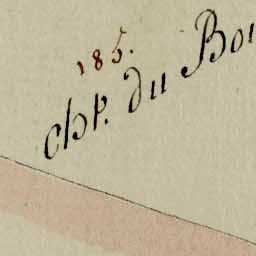 185.
chp. du Bou